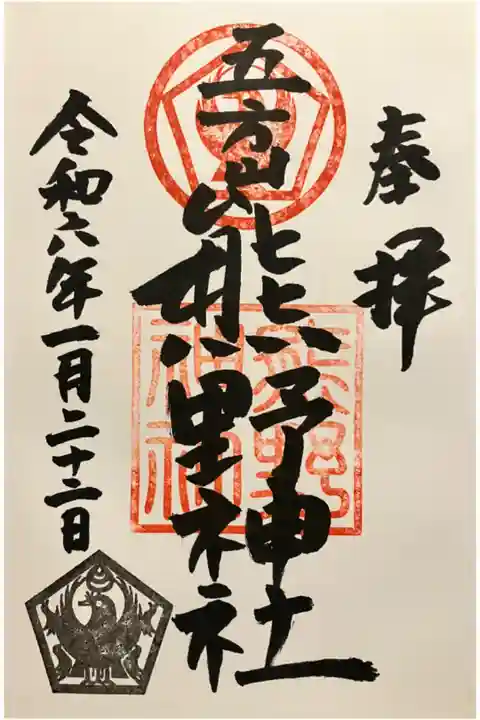 奉拝
五方山熊野神社
熊野
神社
令和六年一月二十二日